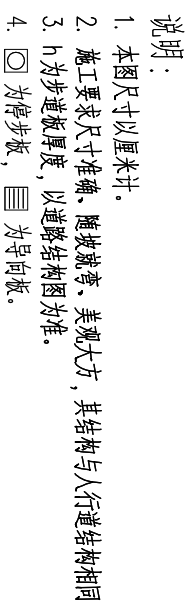 说明：
1. 本图尺寸以厘米计。
2. 施工要求尺寸准确、随坡就弯、美观大方，其结构与人行道结构相同
3. h为步道板厚度，以道路结构图为准。
4. 为停步板， 为导向板。